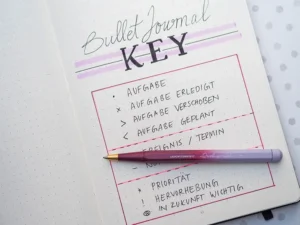 Bullet Journal
KEY
• AUFGABE
× AUFGABE ERLEDIGT
> AUFGABE VERSCHOBEN
< AUFGABE GEPLANT
EREIGNIS / TERMIN
PRIORITÄT
! HERVORHEBUNG
IN ZUKUNFT WICHTIG